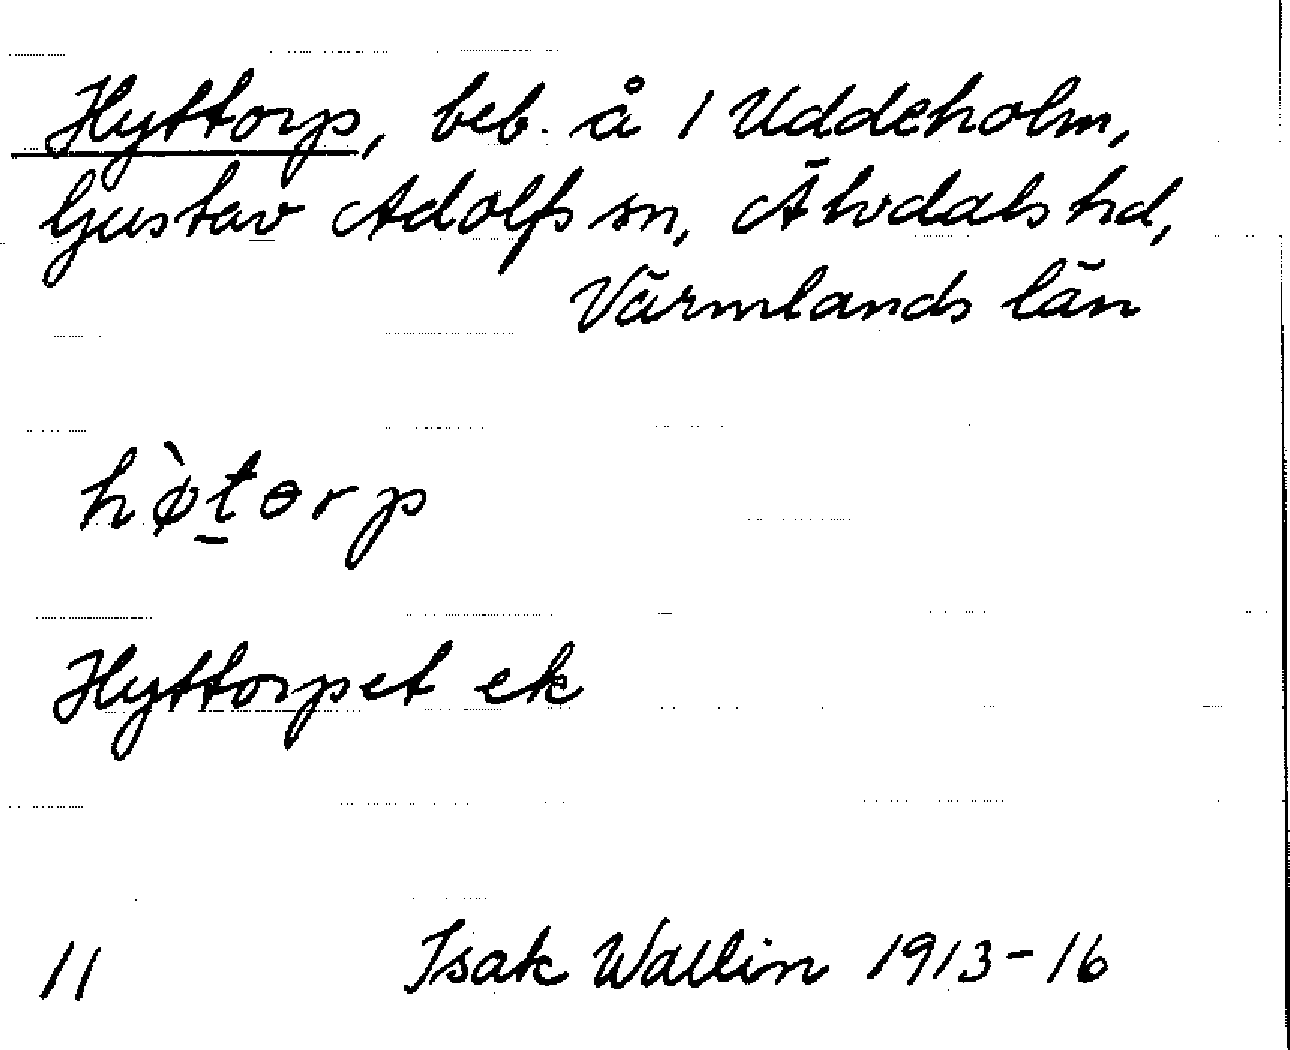 Hyttorp, beb. å 1 Uddeholm,
Gustav Adolfs sn, Älvdals hd,
Värmlands län
hø̀t̠ɵrp
Hyttorpet ek
11 Isak Wallin 1913-16